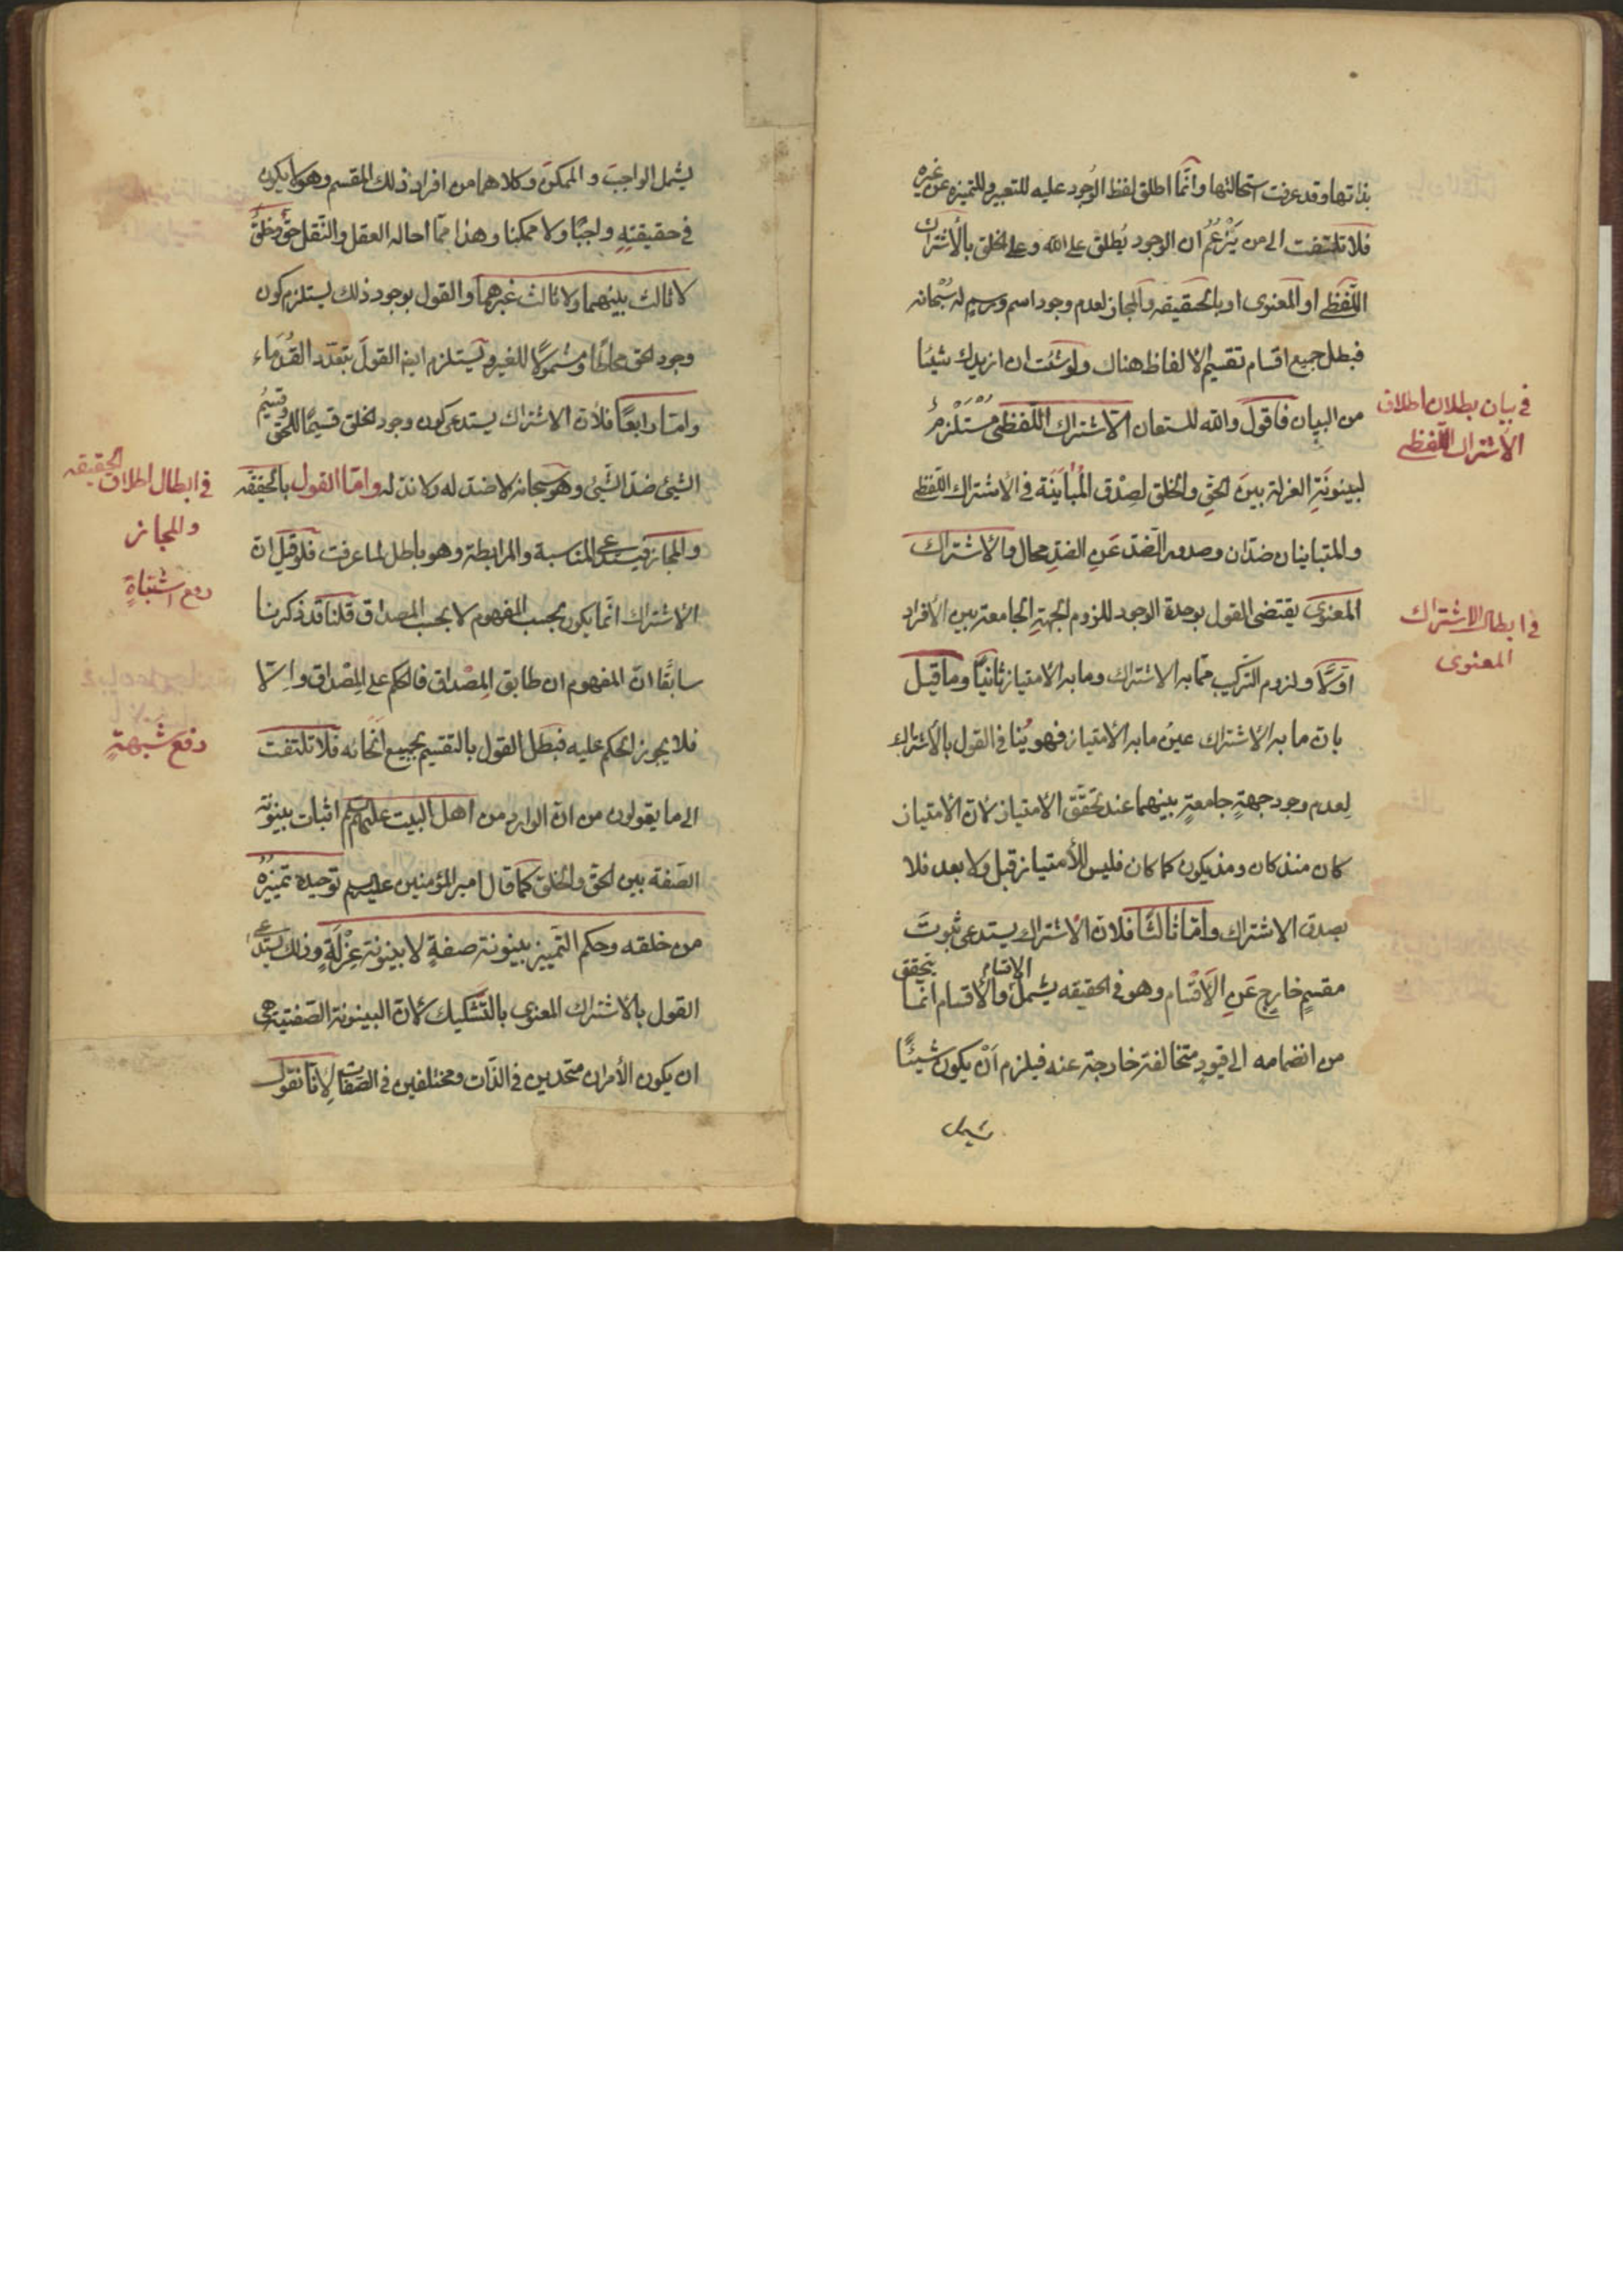 بذاتها وقد عرفت استحالتها وانّما اطلق لفظ الوُجود عليه للتعبير وللتميزه عن غيره
فلا تلتفت الى من يَزْعُمُ ان الوجود يُطلق على الله وعلى الخلق بالأشتراك
اللّفظى او المعنوى او بالحقيقه والمجاز لعدم وجود اسم ورسمٍ له سُبْحانه
فبطل جميع اقسام تقسيم الالفاظ هناك ولو شئت ان ازيدك شيئا
من البيان فاقول والله المستعان انّ الاشتراك اللّفظى مُسْتَلْزِمٌ
لبينونَةِ العزلة بينَ الحقِ والخلق لصِدْق المُبٰايَنَة فى الاشتراك اللّفظى
والمتباينان ضدّان وصدور الضّد عَنِ الضدِ محال والاشتراك
المعنوىّ يقتضى القول بوحدة الوجود للزوم الجهةِ الجامعةِ بين الأفراد
اوّلًا ولزوم التركيب ممّا به الاشتراك وما به الامتياز ثانيًا وما قيل
بانّ ما به الاشتراك عينُ ما به الامتياز فهو يُنافى القول بالاشتراك
لِعدم وجود جهةٍ جامعةٍ بينهما عند تحقّق الامتياز لانّ الامتياز
كان منذ كان ومذ يكون كما كان فليس للأمتياز قبل ولا بعد فلا
يصدق الاشتراك وامّا ثالثًا فلانّ الاشتراك يستدعى ثبوتَ
مقسمٍ خارجٍ عَنِ الاَقْسٰام وهو فى الحقيقه يشمل الاقسام والأقسام انّما يتحقق
من انضمامه الى قيودٍ متخالفة خارجة عنه فيلزم اَنْ يكون شيئًا
يشمل
فى بيان بطلان اطلاق
الاشتراك اللّفظى
فى ابطال الاشتراك
المعنوى
يشمل الواجبَ والممكنَ وكلاهما من افراد ذلك المقسم وهو لا يكون
فى حقيقته واجبًا ولا ممكنا وهذا ممّا احاله العقل والنّقل حقٌ وخلقٌ
لا ثالث بينهما ولا ثالث غيرهما والقول بوجود ذلك يستلزم كون
وجود الحق محاطًا ومشمولًا للغير ويستلزم ايضا القولَ بتعدّد القُدَماء
وامّا رابعًا فلأنّ الاشتراك يستدعى كون وجود الخلق قسيمًا للحق وقسيمُ
الشئ ضدّ الشّئ وهو سبحانه لا ضدّ له ولا ندّ له وامّا القول بالحقيقه
والمجاز فيستدعى المناسبة والمرابطة وهو باطل لما عرفت فلو قيل انّ
الاشتراك انّما يكون بحسب المفهوم لا بحسب المصداق قلنا قد ذكرنا
سابقًا انّ المفهوم ان طابق المِصْداق فالحكم على المِصْداق واِلّا
فلا يجوز الحكم عليه فبطل القول بالتقسيم بجميع اَنْحائه فلا تلتفت
الى ما يقولون من انّ الوارد من اهل البيت عليهم السلم اثبات بينونة
الصّفة بين الحق والخلق كما قال امير المؤمنين عليه السلم توحيده تمييزُهُ
من خلقه وحكم التّمييز بينونة صفةٍ لا بينونة عِزْلَةٍ وذلك يستدعى
القول بالاشتراك المعنوى بالتّشكيك لانّ البينونة الصّفتيه هى
ان يكون الأمران متحدين فى الذّات ومختلفين فى الصّفات لِانّا نقول
فى ابطال اطلاق الحقيقه
والمجاز
دفع اشتباهٍ
دفع شبهةٍ